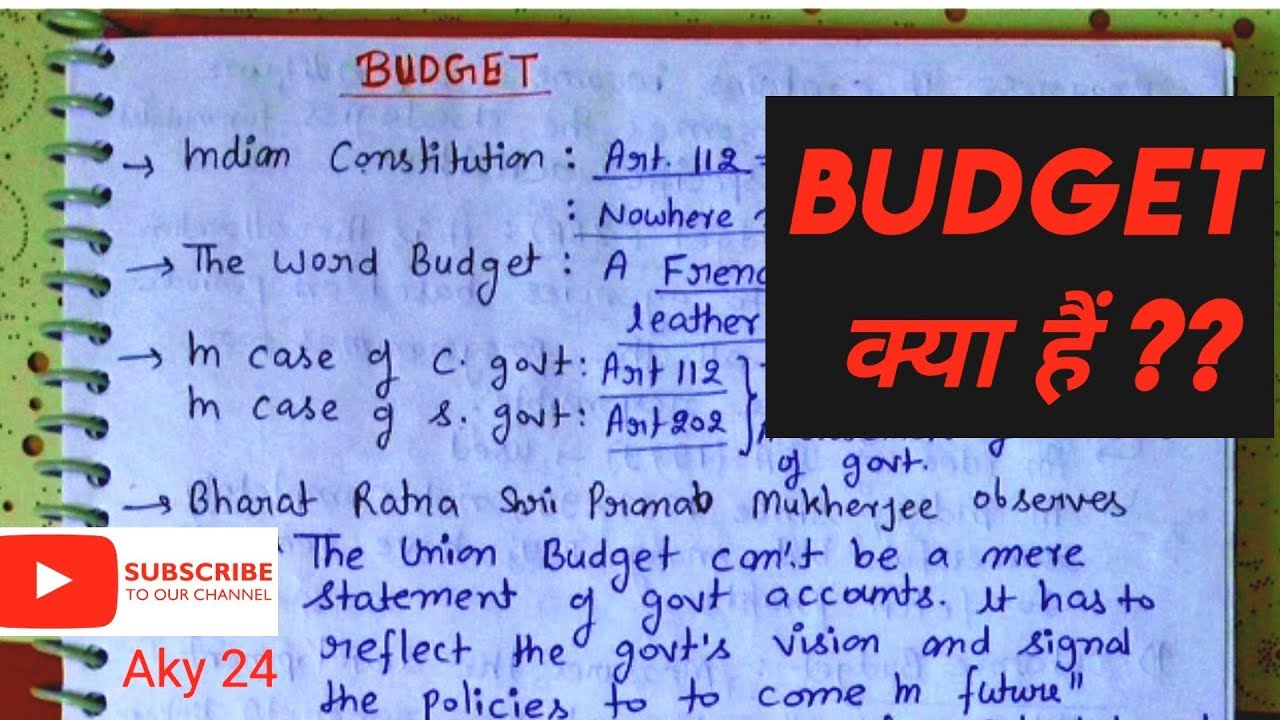 BUDGET
→ Indian Constitution : Art. 112 =
: Nowhere
→ The word Budget : A
leather
→ In case of C. govt : Art 112
In case of S. govt : Art 202
of govt.
→ Bharat Ratna Shri Pranab Mukherjee observes
"The Union Budget can't be a mere
statement of govt accounts. It has to
reflect the govt's vision and signal
the policies to to come in future"
BUDGET
क्या हैं ??
SUBSCRIBE
TO OUR CHANNEL
Aky 24